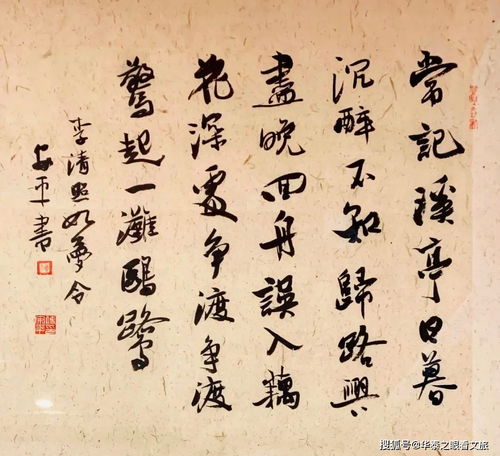 常記溪亭日暮
沉醉不知歸路興
盡晚回舟誤入藕
花深處争渡争渡
驚起一灘鷗鷺
李清照如夢令
平書
搜狐号@华泰之眼看文旅